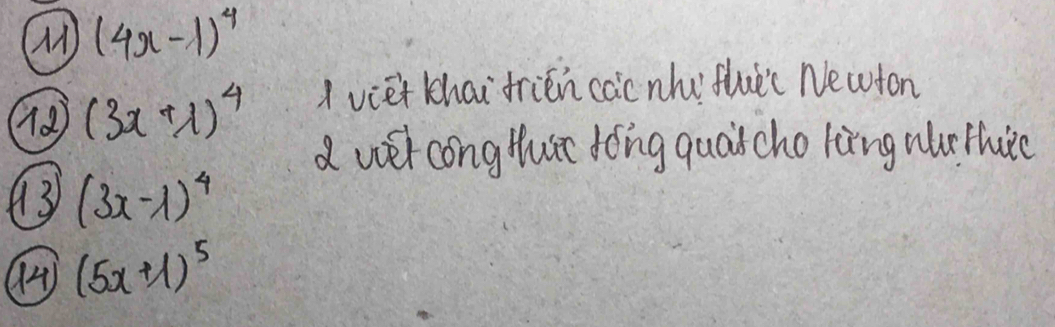 11 (4x-1)⁴
12 (3x+1)⁴
13 (3x-1)⁴
14 (5x+1)⁵
1 viết khai triển các nhị thức Newton
2 viết công thức tổng quát cho từng nhị thức